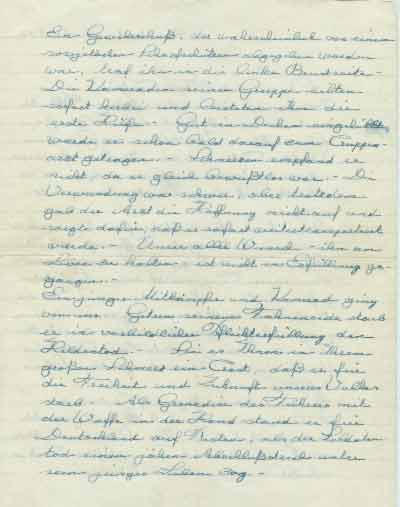 Ein Gewehrschuß, der wahrscheinlich von einem
sowjetischen Scharfschützen abgegeben worden
war, traf ihn in die linke Brustseite.-
Die Kameraden seiner Gruppe eilten
sofort herbei und leisteten ihm die
erste Hilfe.- Gut in Decken eingehüllt
wurde er schon bald darauf zum Truppen-
arzt getragen.- Schmerzen empfand er
nicht, da er gleich bewußtlos war.- Die
Verwundung war schwer, aber trotzdem
gab der Arzt die Hoffnung nicht auf und
sorgte dafür, daß er sofort weitertransportiert
werde.- Unser aller Wunsch - ihn am
Leben zu halten - ist nicht in Erfüllung ge-
gangen.-
Ein junger Mitkämpfer und Kamerad ging
von uns. Getreu seinem Fahneneide starb
er in vorbildlicher Pflichterfüllung den
Heldentod.- Sei es Ihnen in Ihrem
großen Schmerz ein Trost, daß er für
die Freiheit und Zukunft unseres Volkes
starb.- Als Grenadier des Führers mit
der Waffe in der Hand stand er für
Deutschland auf Posten, als der Soldaten-
tod einen jähen Abschlußstrich unter
sein junges Leben zog.-